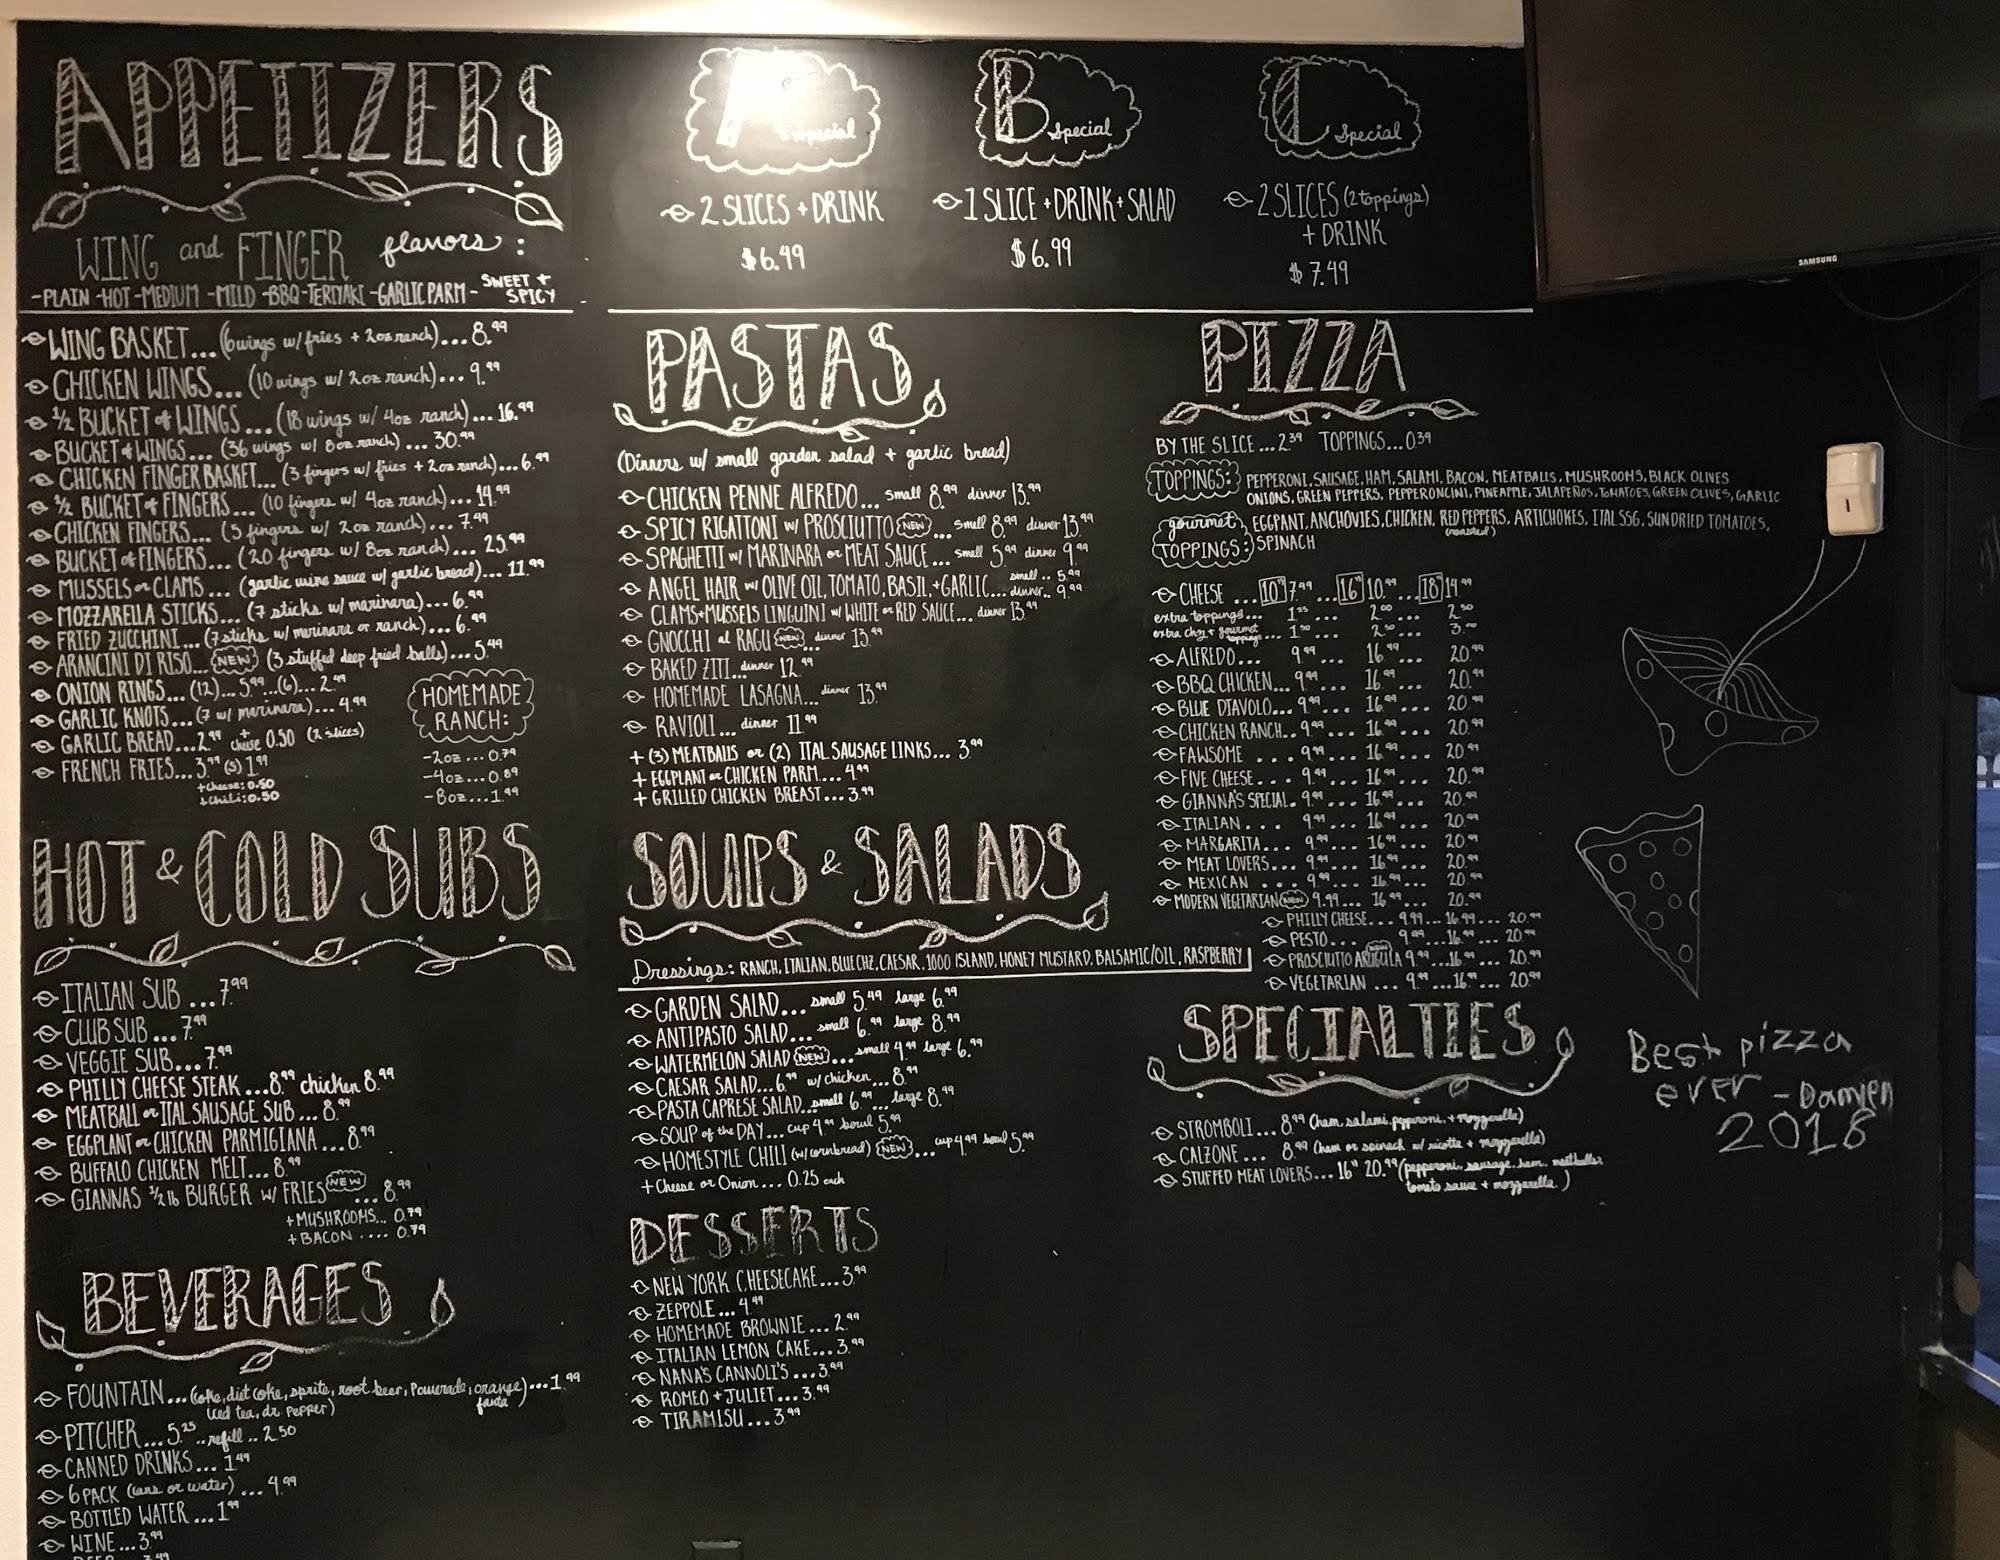 APPETIZERS
WING and FINGER flavors:
-PLAIN -HOT -MEDIUM -MILD -BBQ -TERIYAKI -GARLIC PARM - SWEET + SPICY
WING BASKET... (6 wings w/ fries + 2oz ranch)... 8.99
CHICKEN WINGS... (10 wings w/ 2oz ranch)... 9.99
1/2 BUCKET of WINGS ... (18 wings w/ 4oz ranch)... 16.99
BUCKET of WINGS... (36 wings w/ 8oz ranch)... 30.99
CHICKEN FINGER BASKET... (3 fingers w/ fries + 2oz ranch)... 6.99
1/2 BUCKET of FINGERS ... (10 fingers w/ 4oz ranch)... 14.99
CHICKEN FINGERS... (5 fingers w/ 2oz ranch)... 7.99
BUCKET of FINGERS... (20 fingers w/ 8oz ranch)... 25.99
MUSSELS or CLAMS... (garlic wine sauce w/ garlic bread)... 11.99
MOZZARELLA STICKS... (7 sticks w/ marinara)... 6.99
FRIED ZUCCHINI... (7 sticks w/ marinara or ranch)... 6.99
ARANCINI DI RISO... NEW (3 stuffed deep fried balls)... 5.49
ONION RINGS... (12)... 5.99 ...(6)... 2.49
GARLIC KNOTS... (7 w/ marinara)... 4.99
GARLIC BREAD... 2.99 + cheese 0.50 (2 slices)
FRENCH FRIES... 3.99 (s) 1.99
+cheese: 0.50
+chili: 0.50
HOMEMADE
RANCH:
-2oz... 0.79
-4oz... 0.89
-8oz... 1.99
HOT & COLD SUBS
ITALIAN SUB ... 7.99
CLUB SUB ... 7.99
VEGGIE SUB... 7.99
PHILLY CHEESE STEAK ... 8.99 chicken 8.99
MEATBALL or ITAL. SAUSAGE SUB ... 8.99
EGGPLANT or CHICKEN PARMIGIANA ... 8.99
BUFFALO CHICKEN MELT... 8.99
GIANNAS 1/2 lb BURGER w/ FRIES NEW ... 8.99
+MUSHROOMS... 0.79
+BACON .... 0.79
BEVERAGES
FOUNTAIN... (coke, diet coke, sprite, root beer, Powerade, orange fanta)... 1.99
iced tea, dr. pepper)
PITCHER... 5.25 .. refill .. 2.50
CANNED DRINKS... 1.49
6 PACK (cans or water) ... 4.99
BOTTLED WATER ... 1.99
WINE... 3.99
BEER... 3.49
A Special
2 SLICES + DRINK
$6.49
B Special
1 SLICE + DRINK + SALAD
$6.99
C Special
2 SLICES (2 toppings)
+ DRINK
$7.49
PASTAS
(Dinners w/ small garden salad + garlic bread)
CHICKEN PENNE ALFREDO... small 8.99 dinner 13.99
SPICY RIGATTONI w/ PROSCIUTTO NEW ... small 8.99 dinner 13.99
SPAGHETTI w/ MARINARA or MEAT SAUCE ... small 5.99 dinner 9.99
ANGEL HAIR w/ OLIVE OIL, TOMATO, BASIL, + GARLIC... small .. 5.99 dinner.. 9.99
CLAMS + MUSSELS LINGUINI w/ WHITE or RED SAUCE... dinner 13.99
GNOCCHI al RAGU NEW ... dinner 13.99
BAKED ZITI... dinner 12.99
HOMEMADE LASAGNA... dinner 13.99
RAVIOLI... dinner 11.99
+ (3) MEATBALLS or (2) ITAL. SAUSAGE LINKS... 3.99
+ EGGPLANT or CHICKEN PARM... 4.99
+ GRILLED CHICKEN BREAST... 3.99
SOUPS & SALADS
Dressings: RANCH, ITALIAN, BLUE CHZ, CAESAR, 1000 ISLAND, HONEY MUSTARD, BALSAMIC/OIL, RASPBERRY
GARDEN SALAD... small 5.49 large 6.99
ANTIPASTO SALAD... small 6.99 large 8.99
WATERMELON SALAD NEW ... small 4.99 large 6.99
CAESAR SALAD... 6.99 w/ chicken... 8.99
PASTA CAPRESE SALAD... small 6.99 ... large 8.99
SOUP of the DAY... cup 4.99 bowl 5.99
HOMESTYLE CHILI (w/ cornbread) NEW ... cup 4.99 bowl 5.99
+ Cheese or Onion... 0.25 each
DESSERTS
NEW YORK CHEESECAKE... 3.99
ZEPPOLE... 4.99
HOMEMADE BROWNIE... 2.99
ITALIAN LEMON CAKE... 3.99
NANA'S CANNOLI'S ... 3.99
ROMEO + JULIET... 3.99
TIRAMISU... 3.99
PIZZA
BY THE SLICE... 2.39 TOPPINGS... 0.39
TOPPINGS: PEPPERONI, SAUSAGE, HAM, SALAMI, BACON, MEATBALLS, MUSHROOMS, BLACK OLIVES
ONIONS, GREEN PEPPERS, PEPPERONCINI, PINEAPPLE, JALAPEÑOS, TOMATOES, GREEN OLIVES, GARLIC
gourmet TOPPINGS: EGGPANT, ANCHOVIES, CHICKEN, RED PEPPERS, ARTICHOKES, ITAL SSG, SUNDRIED TOMATOES,
(roasted)
SPINACH
CHEESE ... 10" 7.49 ... 16" 10.99 ... 18" 14.99
extra toppings... 1.25 ... 2.00 ... 2.50
extra chz + gourmet toppings ... 1.50 ... 2.50 ... 3.00
ALFREDO... 9.99 ... 16.99 ... 20.99
BBQ CHICKEN... 9.99 ... 16.99 ... 20.99
BLUE DIAVOLO... 9.99 ... 16.99 ... 20.99
CHICKEN RANCH.. 9.99 ... 16.99 ... 20.99
FAWSOME ... 9.99 ... 16.99 ... 20.99
FIVE CHEESE... 9.99 ... 16.99 ... 20.99
GIANNA'S SPECIAL. 9.99 ... 16.99 ... 20.99
ITALIAN ... 9.99 ... 16.99 ... 20.99
MARGARITA... 9.99 ... 16.99 ... 20.99
MEAT LOVERS... 9.99 ... 16.99 ... 20.99
MEXICAN ... 9.99 ... 16.99 ... 20.99
MODERN VEGETARIAN NEW 9.99 ... 16.99 ... 20.99
PHILLY CHEESE... 9.99 ... 16.99 ... 20.99
PESTO... 9.99 ... 16.99 ... 20.99
PROSCIUTTO ARUGULA NEW 9.99 ... 16.99 ... 20.99
VEGETARIAN ... 9.99 ... 16.99 ... 20.99
SPECIALTIES
STROMBOLI... 8.99 (ham, salami, pepperoni, + mozzarella)
CALZONE ... 8.99 (ham or spinach w/ ricotta + mozzarella)
STUFFED MEAT LOVERS... 16" 20.99 (pepperoni, sausage, ham, meatballs,
tomato sauce + mozzarella.)
SAMSUNG
Best pizza
ever - Damien
2018